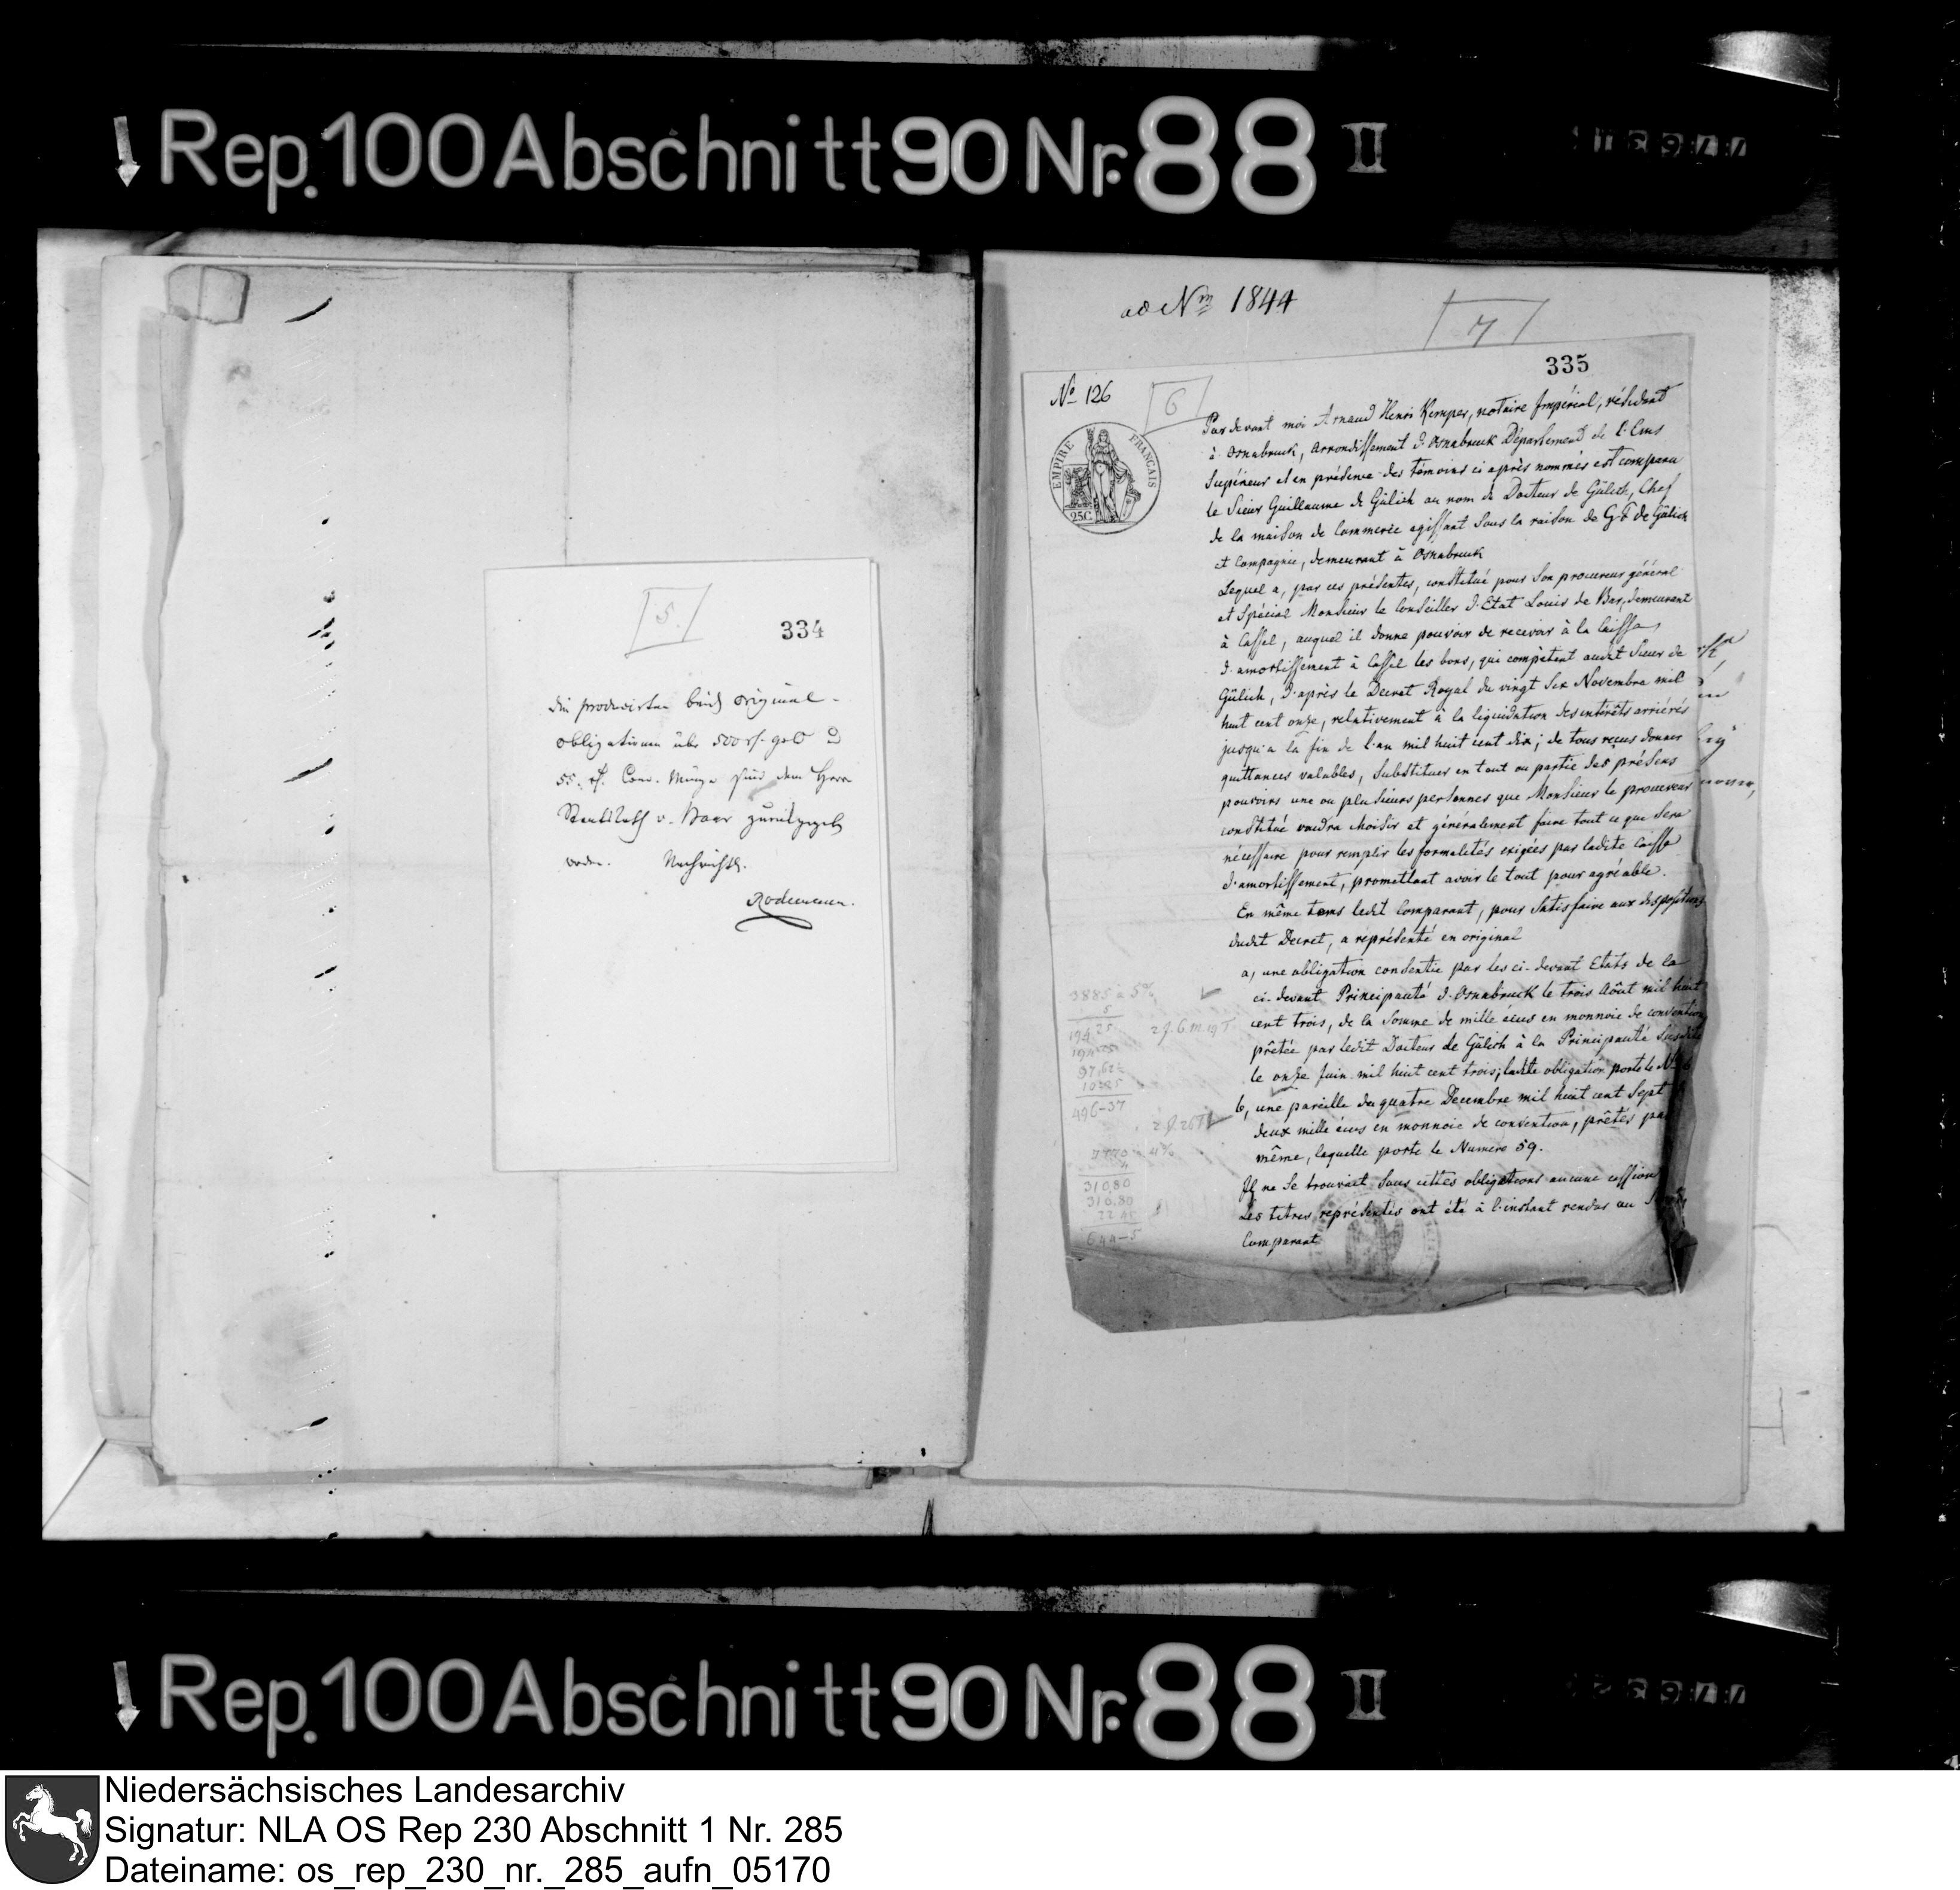 Rep. 100 Abschnitt 90 Nr. 88 II
5.
334
Die producirten beide Original-
obligationen über 500 rf. gold
55. rf. Conv. Münze sind dem Herrn
Staatsrath v. Baar zurückgegeb
worden. Nachrichtl.
ad Nm 1844
7
335
No 126
6
EMPIRE FRANÇAIS
25C
Par devant moi Arnaud Henri Kemper, notaire Impérial, résidant
à Osnabruck, Arrondissement d'Osnabruck Département de l'Ems
Supérieur et en présence des témoins ci après nommés est comparu
le Sieur Guillaume de Gülich au nom de Docteur de Gülich, Chef
de la maison de Commerce agissant sous la raison de G F de Gülich
et Compagnie, demeurant à Osnabruck
Lequel a, par ces présentes, constitué pour Son procureur général
et Spécial Monsieur le Conseiller d'Etat Louis de Bar, demeurant
à Cassel, auquel il donne pouvoir de recevoir à la Caisse
d'amortissement à Cassel les bons, qui compètent audit Sieur de
Gülich, d'après le Decret Royal du vingt Six Novembre mil
huit cent onze, relativement à la liquidation des intérêts arriérés
jusqu'a la fin de l'an mil huit cent dix; de tous reçus donner
quittances valables, Substituer en tout ou partie des présens
pouvoirs une ou plusieurs personnes que Monsieur le procureur
constitué voudra choisir et généralement faire tout ce que Sera
nécessaire pour remplir les formalités exigées par ladite Caisse
d'amortissement, promettant avoir le tout pour agréable.
En même tems ledit Comparant, pour Satisfaire aux dispositions
dudit Decret, a représenté en original
a, une obligation consentie par les ci-devant Etats de la
ci-devant Principauté d'Osnabruck le trois Août mil huit
cent trois, de la Somme de mille écus en monnoie de convention
prêtée par ledit Docteur de Gülich à la Principauté Susdite
le onze Juin mil huit cent trois; ladite obligation porte le No
b, une pareille du quatre Decembre mil huit cent Sept
deux mille écus en monnoie de convention, prêtés pa
même, laquelle porte le Numero 59.
Il ne Se trouvait Sous cettes obligations aucune cession
Les titres représentés ont été à l'instant rendus au
Comparant
3885 a 5%
5
194 25
97,62½
496-37
4%
4
310,80
310,80
644-5
Rep. 100 Abschnitt 90 Nr. 88 II
Niedersächsisches Landesarchiv
Signatur: NLA OS Rep 230 Abschnitt 1 Nr. 285
Dateiname: os_rep_230_nr._285_aufn_05170